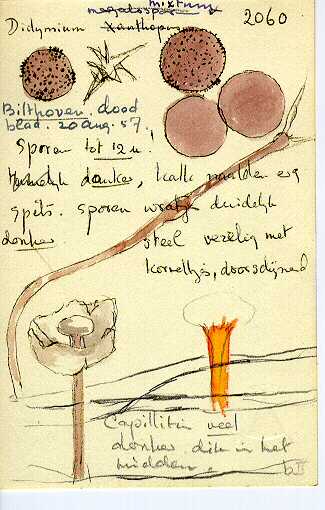 mixtum
megalosporum
2060
Didymium Xanthopus
Bilthoven. dood
blad. 20 aug. 57
Sporen tot 12 u!
donker, kalk naalden erg
spits. sporen wratig duidelijk
donker
steel vezelig met
korreltjes, doorschijnend
Capillitium veel
donker. dik in het
midden.